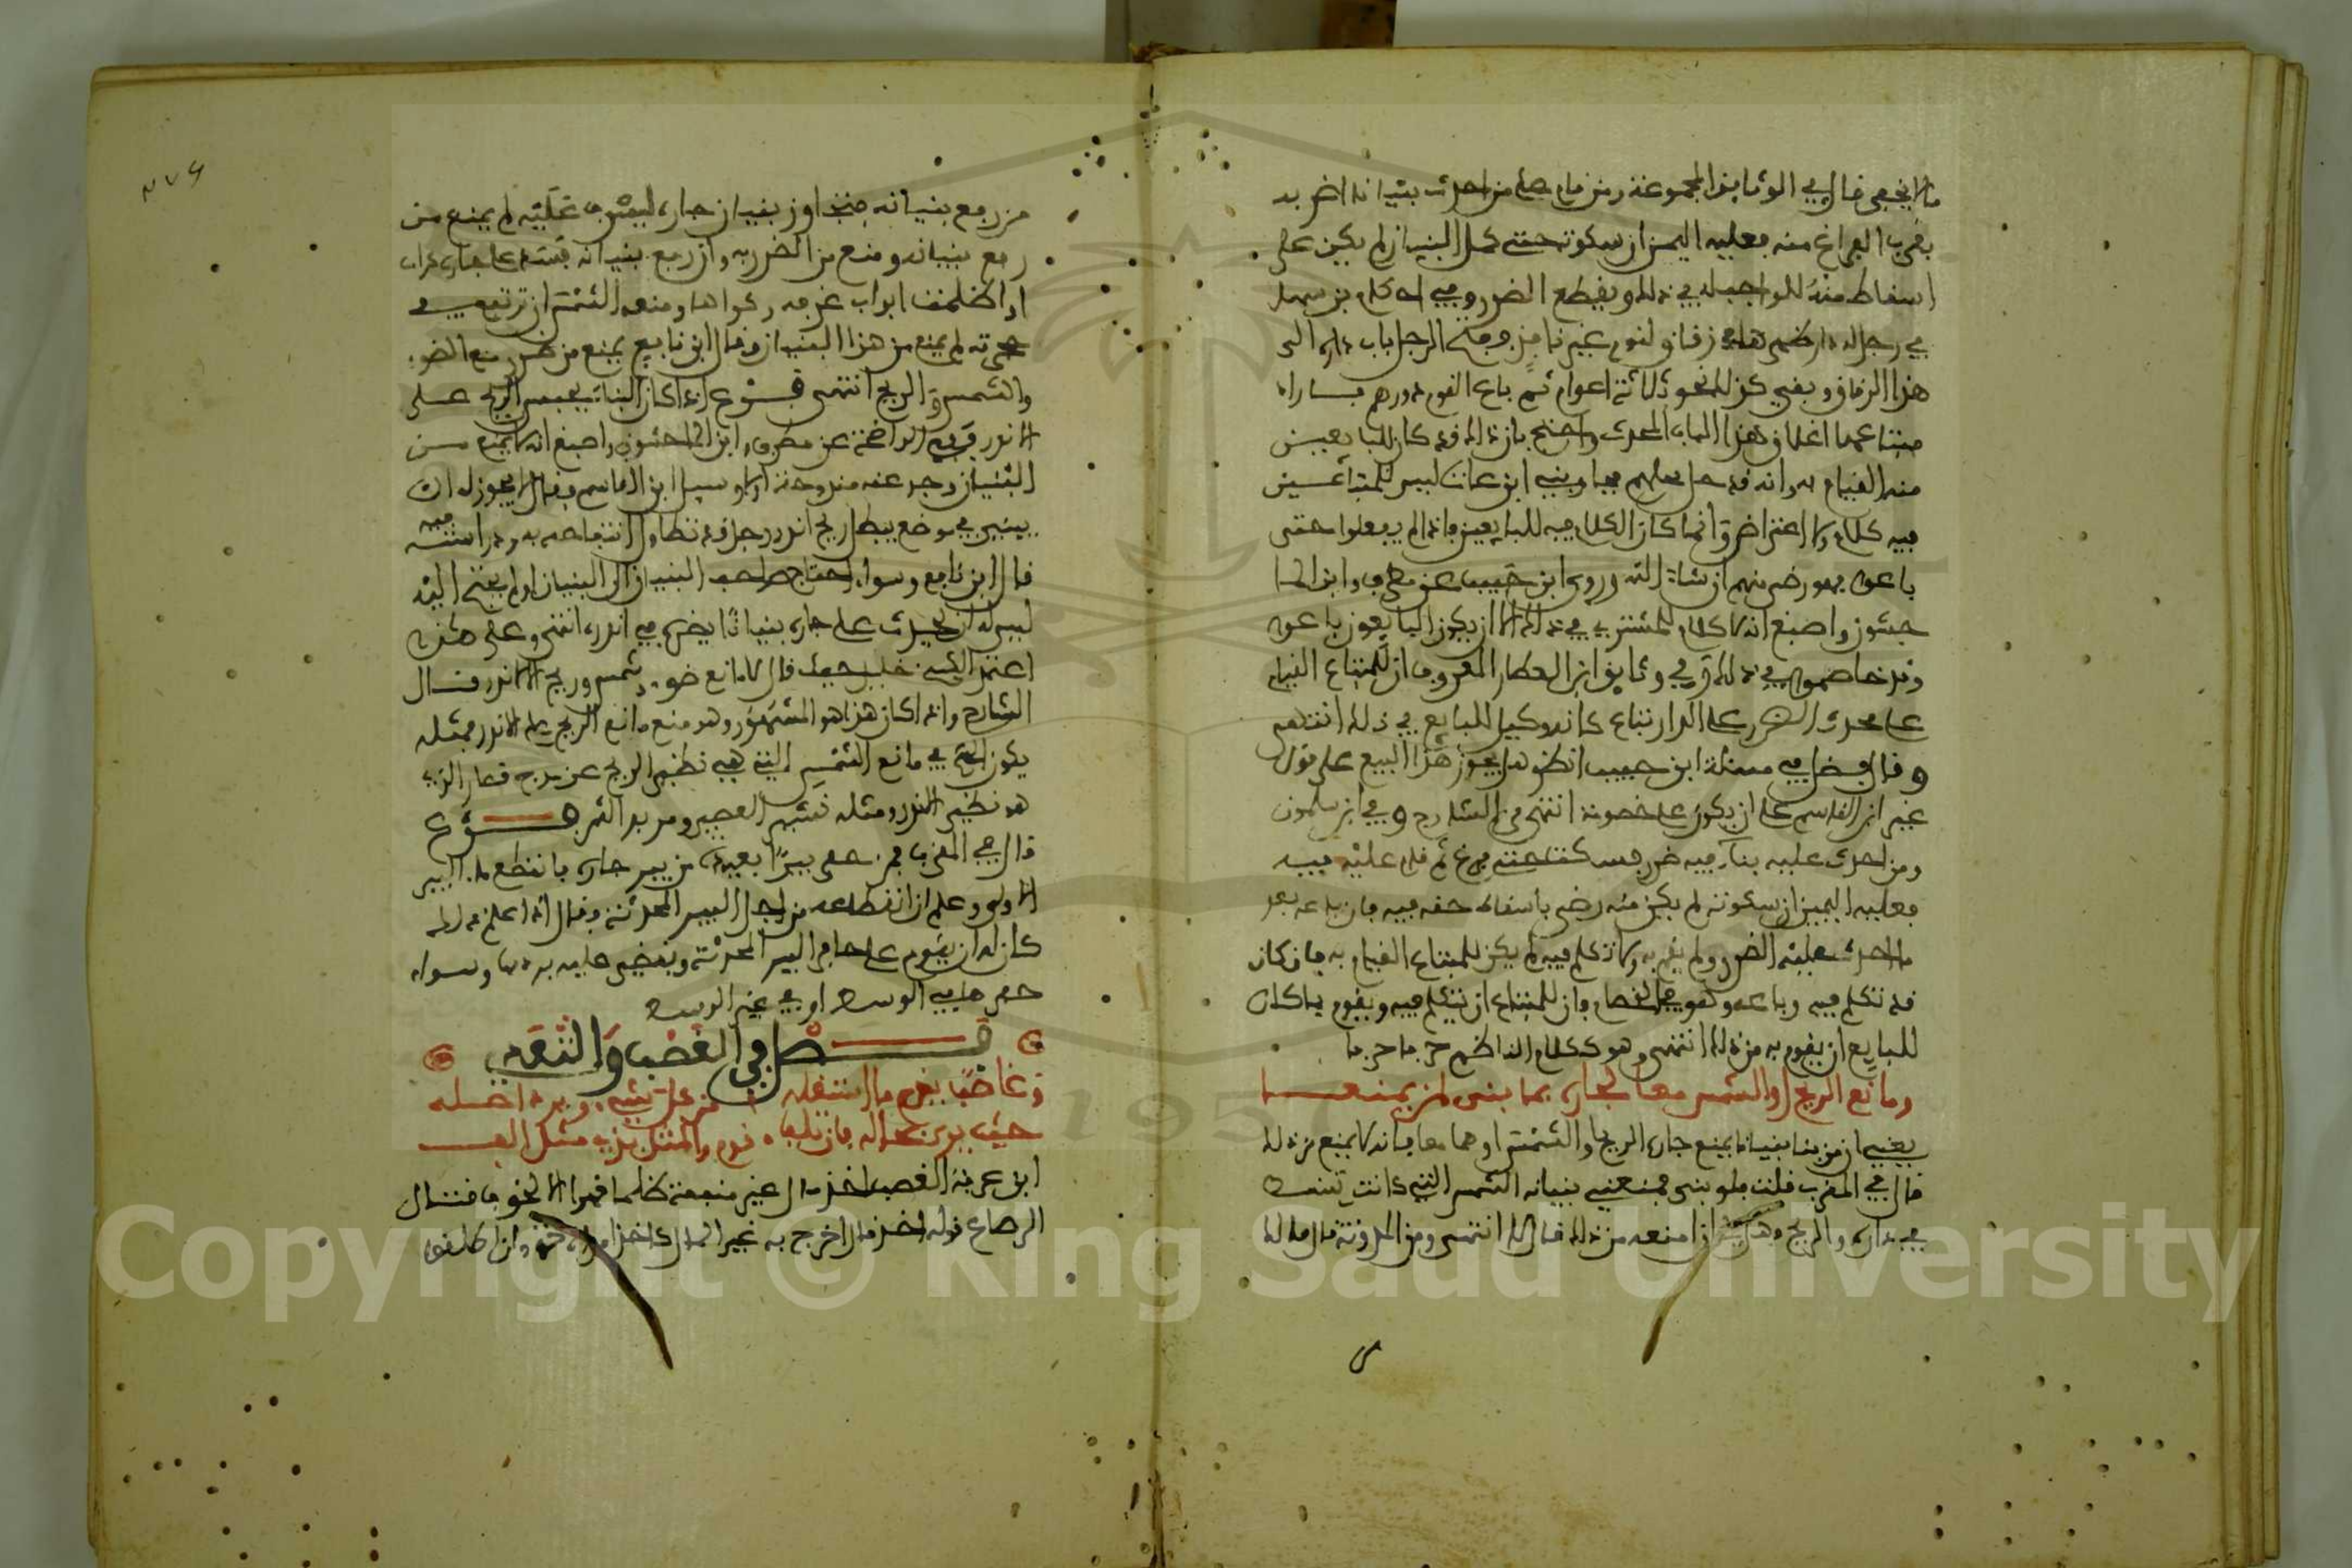 قال في الوثايق المجموعة ومن قام على من احدث بنيانا اضر به
بقرب الفراغ منه فعليه اليمين ان سكوته حتى كمل البنيان لم يكن على
اسقاط منه للواجب له في ذلك ويقطع الضرر وفي احكام بن سهل
في رجل له دار ظهرها في زقاق لقوم غير نافذ ففتح الرجل باب داره الى
هذا الزقاق وبقي كذلك نحو ثلاثة اعوام ثم باع القوم دورهم فاراد
مبتاعها اغلاق هذا الباب المحدث واحتج بان ذلك قد كان للبايعين
منه القيام به وانه قد حل محلهم فيها وبنى ابن عتاب ليس للمبتاعين
فيه كلام ولا اعتراض وانما كان الكلام فيه للبايعين فاذا لم يفعلوا حتى
باعوا فهو رضى منهم ان شاء الله وروى ابن حبيب عن مطرف وابن الما
جشون واصبغ انه لا كلام للمشتري في ذلك الا ان يكون البايعون باعوا
وقد خاصموا في ذلك وفي وثايق ابن العطار المعروف ان للمبتاع القيام
على محدث الضرر على الدار تباع كانه وكيل للبايع في ذلك انتهى
وقال فضل في مسئلة ابن حبيب انظر هل يجوز هذا البيع على قول
غير ابن القاسم على ان يكون على خصومة انتهى من الشارح وفي ابن سلمون
ومن احدث عليه بناء فيه ضرر فسكت حتى فرغ ثم قام عليه فيه
فعليه اليمين ان سكوته لم يكن منه رضى باسقاط حقه فيه فان باعه بعد
ما احدث عليه الضرر ولم يقم به ولا تكلم فيه لم يكن للمبتاع القيام به فان كان
قد تكلم فيه وباعه وهو في الخصام فان للمبتاع ان يتكلم فيه ويقوم بما كان
للبايع ان يقوم به من ذلك انتهى وهو ككلام الناظم حرفا حرفا
ومانع الريح او الشمس معا لجاره بما بنى لن يمنعا
يعني ان من بنا بنيانا يمنع جاره الريح او الشمس او هما معا فانه لا يمنع من ذلك
قال في المغرب قلت فلو بنى فمنعني بنيانه الشمس التي كانت تسقط
في داره والريح وهل لي ان امنعه من ذلك قال لا انتهى ومن المدونة قال مالك
من رفع بنيانه فتجاوز بنيان جاره ليشرف عليه لم يمنع من
رفع بنيانه ومنع من الضرر به وان رفع بنيانه فسد على جاره كواه
او اظلمت ابواب غرفه وكواها ومنعه الشمس ان ترتفع في
حجرته لم يمنع من هذا البنيان وقال ابن نافع يمنع من ضرر منع الضوء
والشمس والريح انتهى فرع اذا كان البناء يحبس الريح على
الاندر ففي الواضحة عن مطرف وابن الماجشون واصبغ انه لا يمنع من
البنيان وجد عنه مندوحة ام لا وسيل ابن القاسم فقال لا يجوز له ان
يبني في موضع يبطل ريح اندر رجل قد تطاول انتفاعه به ودراسته فيه
قال ابن نافع وسواء احتاج صاحب البنيان الى البنيان او لم يحتج اليه
ليس له ان يحدث على جاره بنيانا يضر به في اندره انتهى وعلى هذا
اعتمد الشيخ خليل حيث قال لا مانع ضوء وشمس وريح الا لاندر قال
الشارح واذا كان هذا هو المشهور وهو منع مانع الريح على الاندر فمثله
يكون الحكم في مانع الشمس التي هي نظير الريح عن مرج قصار الذي
هو نظير الاندر ومثله تشميس العصير ومربد التمر فرع
قال في المغرب فمن حفر بيرا بعيدة من بير جاره فانقطع ماء البير
الاولى وعلم ان انقطاعه من اجل البير المحدثة فقال اذا علم ذلك
كان له ان يقوم على حافر البير المحدثة ويقضى عليه بردمها وسواء
حفرها في الوسط او في غير الوسط
فصل في الغصب والتعدي
وغاصب يغرم ما استغله من كل شيء ويرد اصله
حيث يرى بحاله فان تلف قوم والمثل بذي مثل الف
ابن عرفة الغصب اخذ مال غير منفعة ظلما قهرا لا لخوف قتال
الرصاع قوله اخذ مال اخرج به غير المال